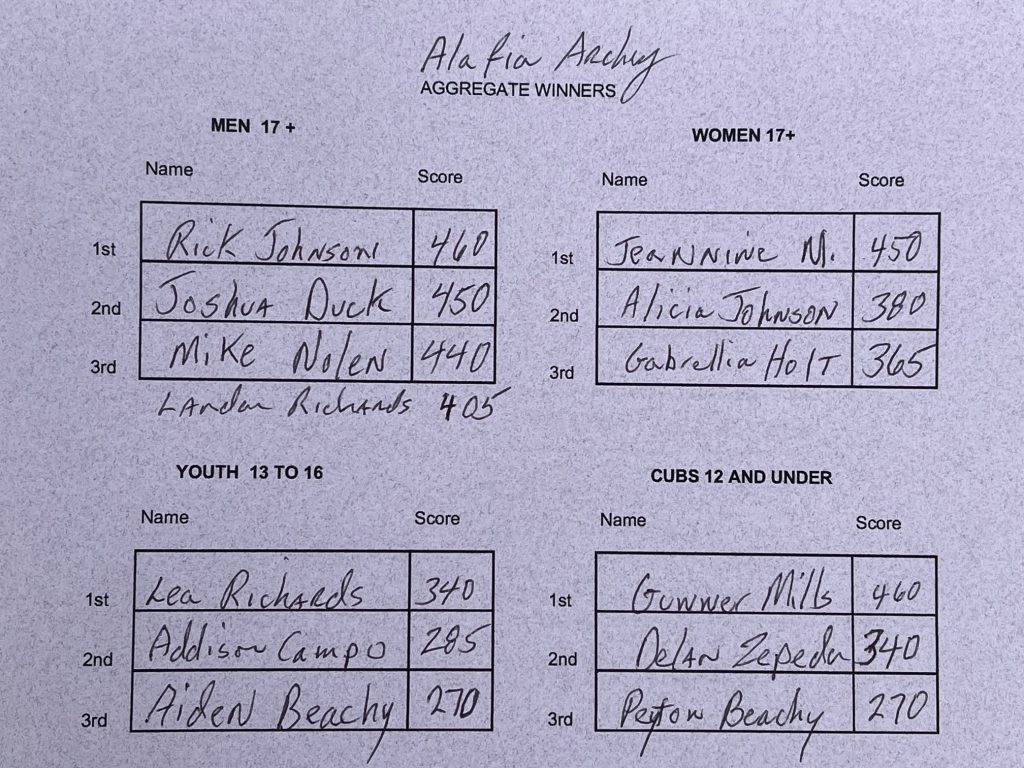 Alafia Archey
AGGREGATE WINNERS
MEN 17 +
Name Score
1st Rick Johnson 460
2nd Joshua Duck 450
3rd Mike Nolen 440
Landon Richards 405
WOMEN 17+
Name Score
1st Jeannine M. 450
2nd Alicia Johnson 380
3rd Gabrellia Holt 365
YOUTH 13 TO 16
Name Score
1st Lea Richards 340
2nd Addison Campo 285
3rd Aiden Beachy 270
CUBS 12 AND UNDER
Name Score
1st Gunner Mills 460
2nd Delan Zepeda 340
3rd Peyton Beachy 270